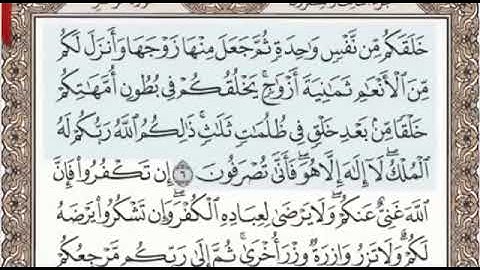 خَلَقَكُم مِّن نَّفْسٍ وَٰحِدَةٍ ثُمَّ جَعَلَ مِنْهَا زَوْجَهَا وَأَنزَلَ لَكُم
مِّنَ ٱلْأَنْعَٰمِ ثَمَٰنِيَةَ أَزْوَٰجٍ ۚ يَخْلُقُكُمْ فِى بُطُونِ أُمَّهَٰتِكُمْ
خَلْقًا مِّنۢ بَعْدِ خَلْقٍ فِى ظُلُمَٰتٍ ثَلَٰثٍ ۚ ذَٰلِكُمُ ٱللَّهُ رَبُّكُمْ لَهُ
ٱلْمُلْكُ ۖ لَآ إِلَٰهَ إِلَّا هُوَ ۖ فَأَنَّىٰ تُصْرَفُونَ ٦ إِن تَكْفُرُوا۟ فَإِنَّ
ٱللَّهَ غَنِىٌّ عَنكُمْ ۖ وَلَا يَرْضَىٰ لِعِبَادِهِ ٱلْكُفْرَ ۖ وَإِن تَشْكُرُوا۟ يَرْضَهُ
لَكُمْ ۗ وَلَا تَزِرُ وَازِرَةٌ وِزْرَ أُخْرَىٰ ۗ ثُمَّ إِلَىٰ رَبِّكُم مَّرْجِعُكُمْ